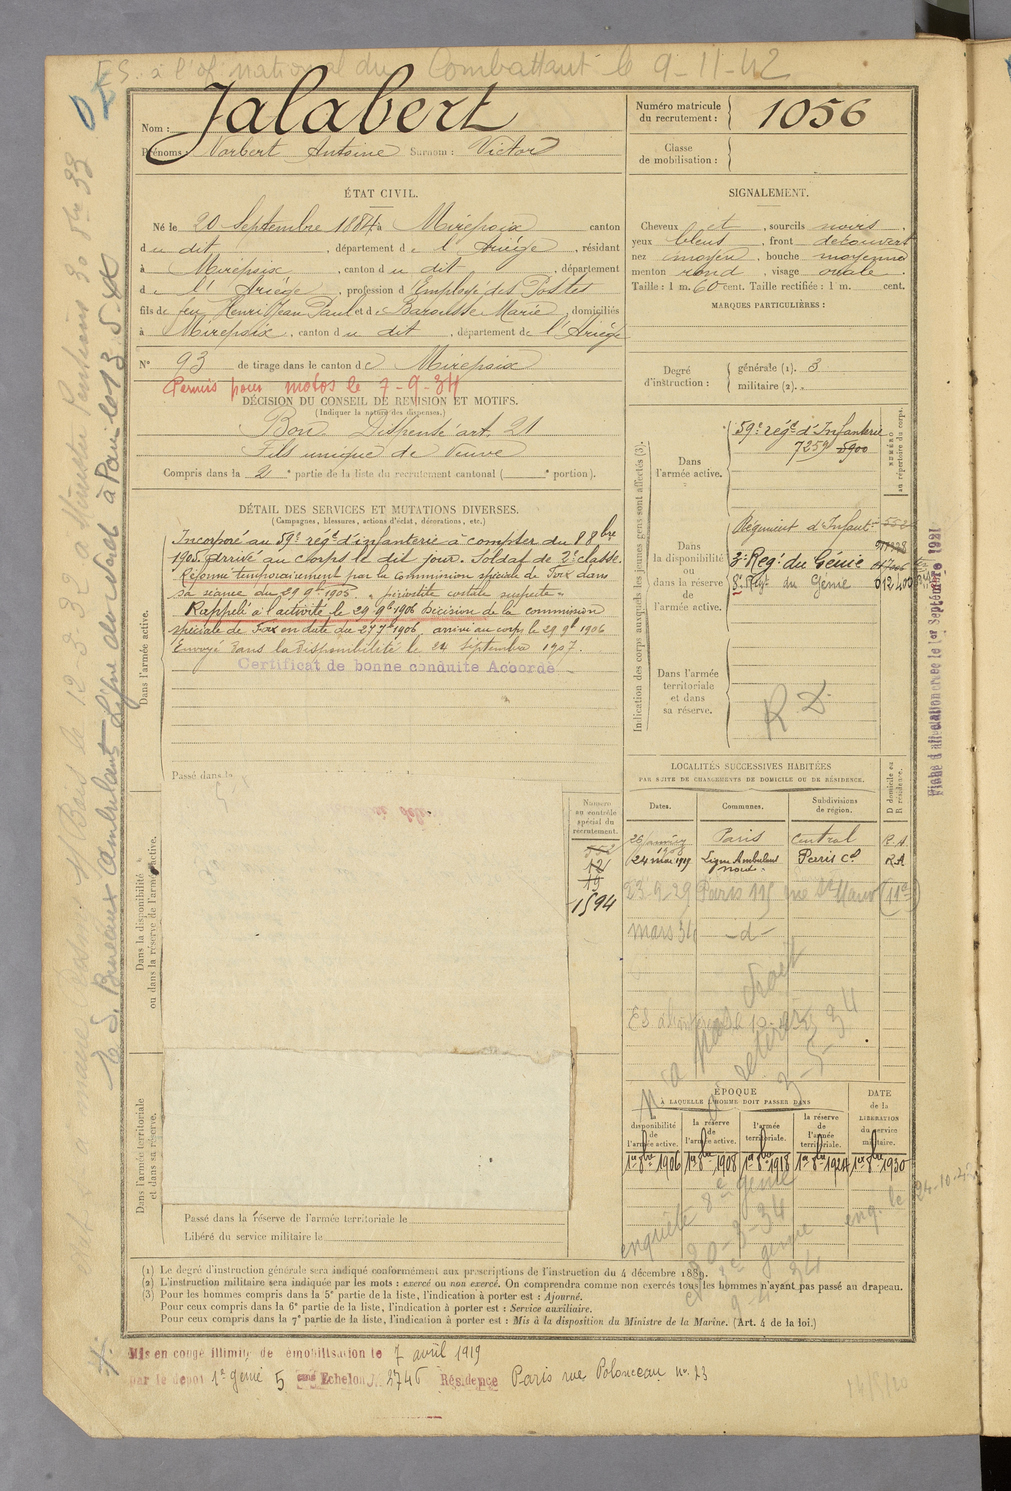 E.S. à l'of. national du Combattant le 9-11-42
Nom : Jalabert
Prénoms : Norbert Antoine Surnom : Victor
Numéro matricule du recrutement : 1056
Classe de mobilisation :
ÉTAT CIVIL.
Né le 20 Septembre 1884 à Mirepoix canton
du dit, département de l'Ariège, résidant
à Mirepoix, canton du dit, département
de l'Ariège, profession d'Employé des Postes
fils de feu Henri Jean Paul et de Barousse Marie, domiciliés
à Mirepoix, canton du dit, département de l'Ariège
N° 93 de tirage dans le canton de Mirepoix
Permis pour motos le 7-9-34
DÉCISION DU CONSEIL DE REVISION ET MOTIFS.
(Indiquer la nature des dispenses.)
Bon. Dispensé art. 21
Fils unique de Veuve
Compris dans la 2e partie de la liste du recrutement cantonal ( portion).
SIGNALEMENT.
Cheveux et, sourcils noirs,
yeux bleus, front découvert
nez moyen, bouche moyenne
menton rond, visage ovale.
Taille : 1 m. 60 cent. Taille rectifiée : 1 m. cent.
MARQUES PARTICULIÈRES :
Degré d'instruction :
générale (1). 3
militaire (2).
DÉTAIL DES SERVICES ET MUTATIONS DIVERSES.
(Campagnes, blessures, actions d'éclat, décorations, etc.)
Incorporé au 59e régt d'infanterie à compter du 8 8bre
1905, arrivé au corps le dit jour. Soldat de 2e classe.
Réformé temporairement par la commission spéciale de Foix dans
sa séance du 29 9bre 1905. "périostite costale suspecte"
Rappelé à l'activité le 29 9bre 1906 Décision de la commission
spéciale de Foix en date du 27 7bre 1906, arrivé au corps le 29 9bre 1906
Envoyé dans la disponibilité le 24 Septembre 1907.
Certificat de bonne conduite Accordé
Passé dans la
Dans l'armée active.
Dans la disponibilité ou dans la réserve de l'armée active.
Dans l'armée territoriale et dans sa réserve.
Indication des corps auxquels les jeunes gens sont affectés (3).
NUMÉRO au répertoire du corps.
Dans l'armée active.
59e régt d'Infanterie
7259 5900
Dans la disponibilité ou dans la réserve de l'armée active.
Régiment d'Infantie
3e Reg. du Génie
8e Régt du Génie 012400
Dans l'armée territoriale et dans sa réserve.
R D
Fiche d'affectation créée le 1er Septembre 1921
Numéro au contrôle spécial du recrutement.
12
19
1594
LOCALITÉS SUCCESSIVES HABITÉES
PAR SUITE DE CHANGEMENTS DE DOMICILE OU DE RÉSIDENCE.
Dates. Communes. Subdivisions de région. D domicile ou R résidence.
26 janvier 1908 Paris Central R.A
24 mai 1919 Ligne Ambulant Nord Paris Cal R.A
23-9-29 Paris 115 rue St Maur (11e)
mars 34 -d-
N'a pas droit
à retirer
3-5-34
ÉPOQUE
À LAQUELLE L'HOMME DOIT PASSER DANS
la disponibilité de l'armée active. la réserve de l'armée active. l'armée territoriale. la réserve de l'armée territoriale. DATE de la LIBÉRATION du service militaire.
1er 8bre 1906 1er 8bre 1908 1er 8bre 1918 1er 8bre 1924 1er 8bre 1930
enquête 8e génie
30-3-34
9-4-34
enq. le 24-10-
Passé dans la réserve de l'armée territoriale le
Libéré du service militaire le
(1) Le degré d'instruction générale sera indiqué conformément aux prescriptions de l'instruction du 4 décembre 1889.
(2) L'instruction militaire sera indiquée par les mots : exercé ou non exercé. On comprendra comme non exercés tous les hommes n'ayant pas passé au drapeau.
(3) Pour les hommes compris dans la 5e partie de la liste, l'indication à porter est : Ajourné.
Pour ceux compris dans la 6e partie de la liste, l'indication à porter est : Service auxiliaire.
Pour ceux compris dans la 7e partie de la liste, l'indication à porter est : Mis à la disposition du Ministre de la Marine. (Art. 4 de la loi.)
Mis en congé illimité de démobilisation le 7 avril 1919
par le dépôt 1er génie 5 Echelon N° 2746 Résidence Paris rue Polonceau n° 23